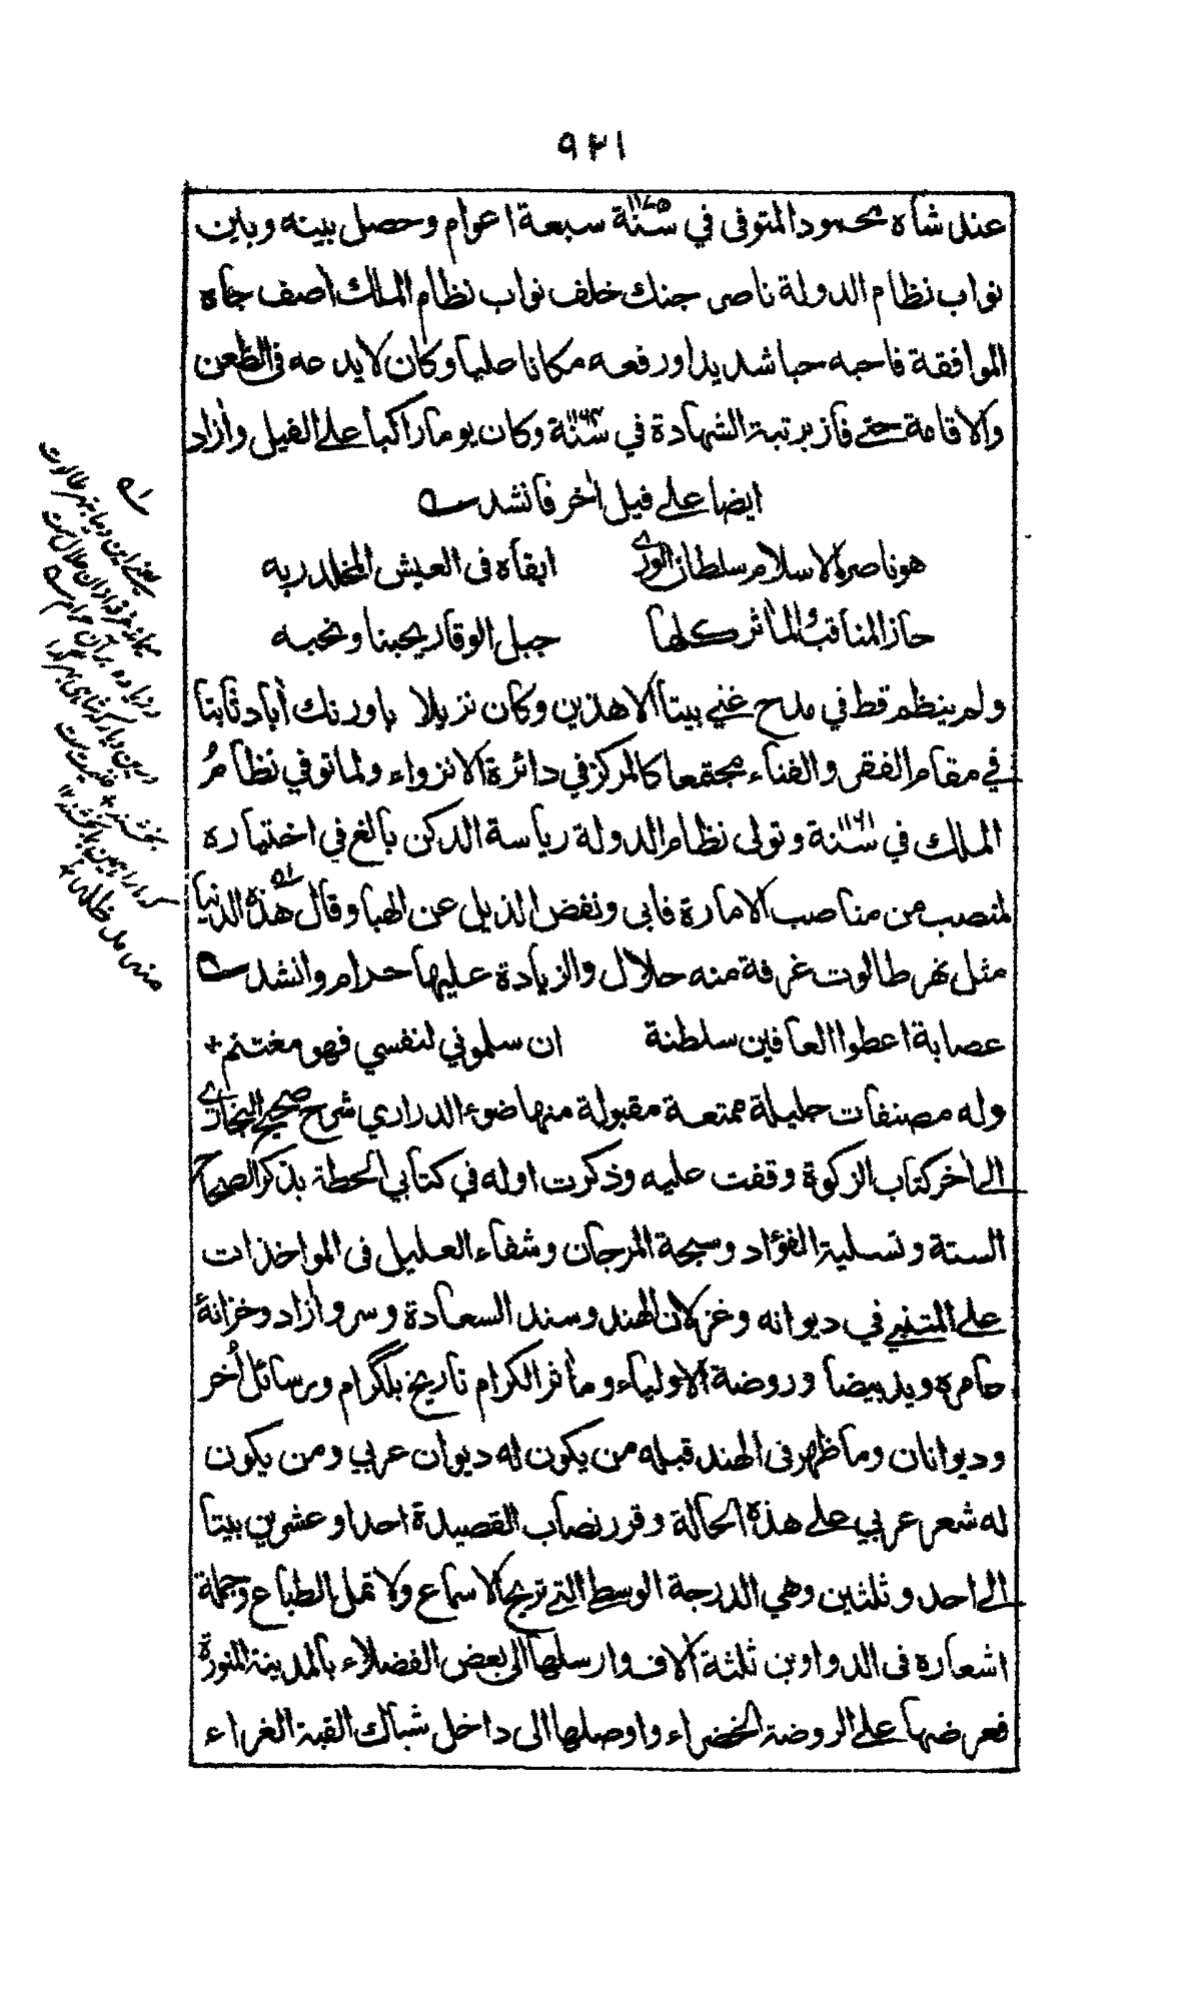 ٩٢١
عند شاه محمود المتوفى في سنة ١١٧٥ سبعة اعوام وحصل بينه وباين
نواب نظام الدولة ناصر جنك خلف نواب نظام الملك آصف جاه
الموافقة فاحبه حبا شديدا ورفعه مكانا عليا وكان لا يدعه في الظعن
والاقامة حتے فاز برتبة الشهادة في سنة ١١٦٤ وكان يوما راكبا علے الفيل وآزاد
ايضا علے فيل آخر فانشد
هو ناصر الاسلام سلطان الورے ابقاه في العيش المخلد ربه
حاز المناقب والمآثر كلها جبل الوقار يحبنا ونحبه
ولم ينظم قط في مدح غني بيتا الا هذين وكان نزيلا باورنك آباد ثابتا
في مقام الفقر والفناء مجتمعا كالمركز في دائرة الانزواء ولما توفي نظام
الملك في سنة ١١٦١ وتولى نظام الدولة رياسة الدكن بالغ في اختياره
لمنصب من مناصب الامارة فابى ونفض الذيل عن الهبا وقال هذه الدنيا
مثل نهر طالوت غرفة منه حلال والزيادة عليها حرام وانشد
عصابة اعطوا العافين سلطنة ان سلموني لنفسي فهو مغتنم
وله مصنفات جليلة ممتعة مقبولة منها ضوء الدراري شرح صحيح البخارے
الے آخر كتاب الزكوة وقفت عليه وذكرت اوله في كتابي الحطة بذكر الصحاح
الستة وتسلية الفؤاد وسبحة المرجان وشفاء العليل في المواخذات
علے المتنبے في ديوانه وغزلان الهند وسند السعادة وسرو آزاد وخزانة
عامره ويد بيضا وروضة الاولياء ومآثر الكرام تاريخ بلگرام ورسائل أخر
وديوانان وما ظهر في الهند قبله من يكون له ديوان عربي ومن يكون
له شعر عربي علے هذه الحالة وقرر نصاب القصيدة احدا وعشرين بيتا
الے احد وثلثين وهي الدرجة الوسطے التے تريح الاسماع ولا تمل الطباع وجملة
اشعاره في الدواوين ثلثة آلاف وارسلها الى بعض الفضلاء بالمدينة المنورة
فعرضها علے الروضة الخضراء واوصلها الى داخل شباك القبة الغراء
يعنے اين دنيا نهر طالوت